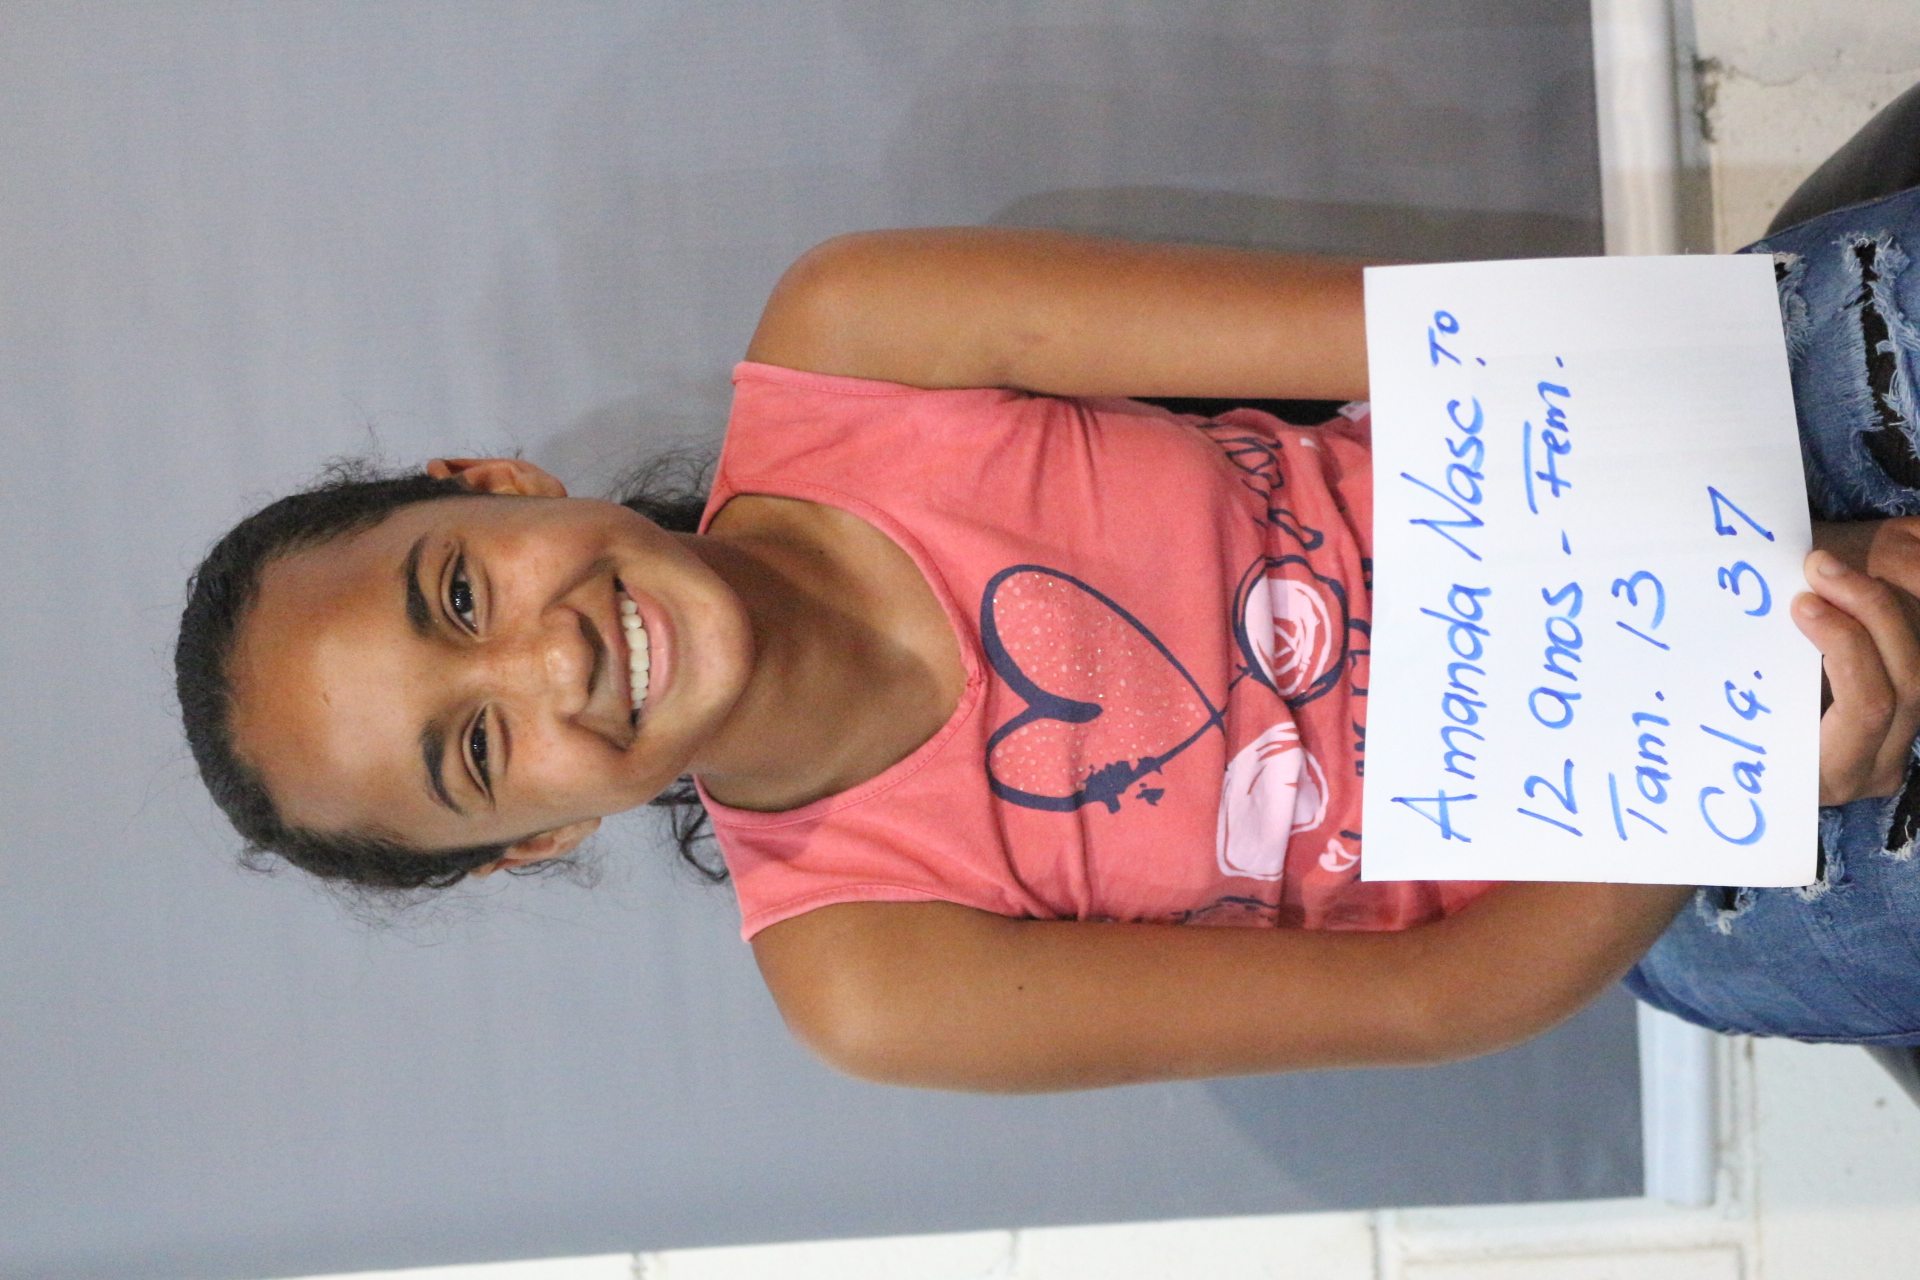 Amanda Nasc.to
12 anos - Fem.
Tam. 13
Calç. 37